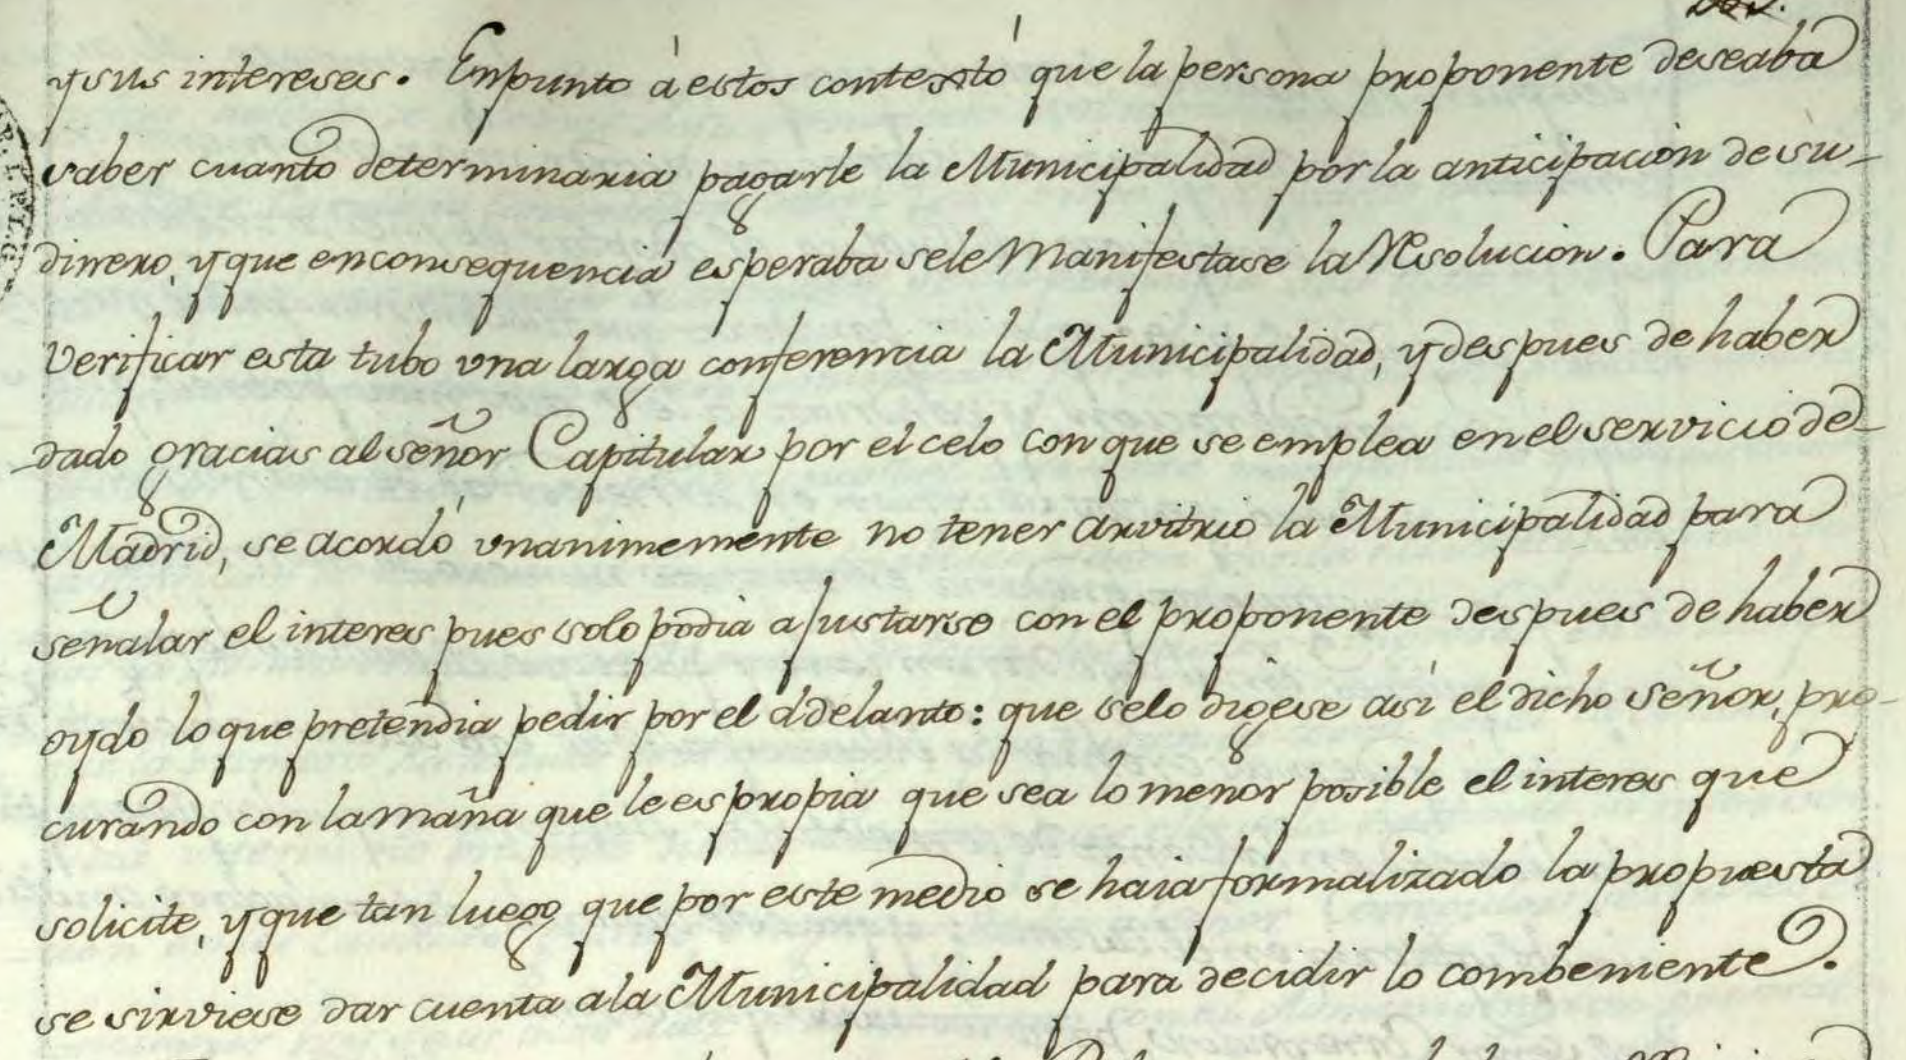 y sus intereses. En punto á estos contestó que la persona proponente deseaba
saber cuanto determinaria pagarle la Municipalidad por la anticipacion de su
dinero, y que en consequencia esperaba se le Manifestase la Resolucion. Para
Verificar esta tubo una larga conferencia la Municipalidad, y despues de haber
dado gracias al señor Capitular por el celo con que se emplea en el servicio de
Madrid, se acordó unanimemente no tener arvitrio la Municipalidad para
señalar el interes pues solo podia ajustarse con el proponente despues de haber
oydo lo que pretendia pedir por el addelanto: que se lo digese asi el dicho señor, pro-
curando con la maña que le es propia que sea lo menor posible el interes que
solicite, y que tan luego que por este medio se haia formalizado la propuesta
se sirviese dar cuenta a la Municipalidad para decidir lo combeniente.